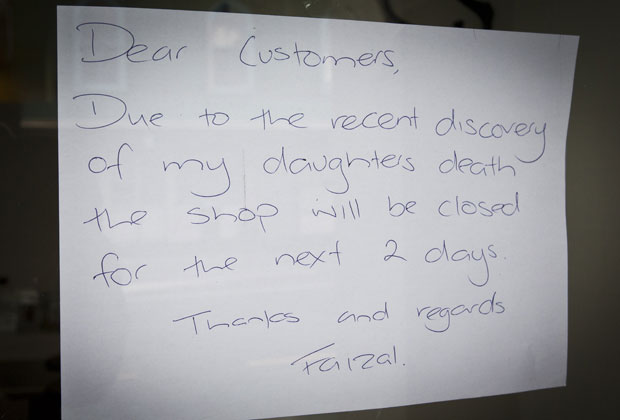 Dear Customers,
Due to the recent discovery
of my daughters death
the shop will be closed
for the next 2 days.
Thanks and regards
Faizal.